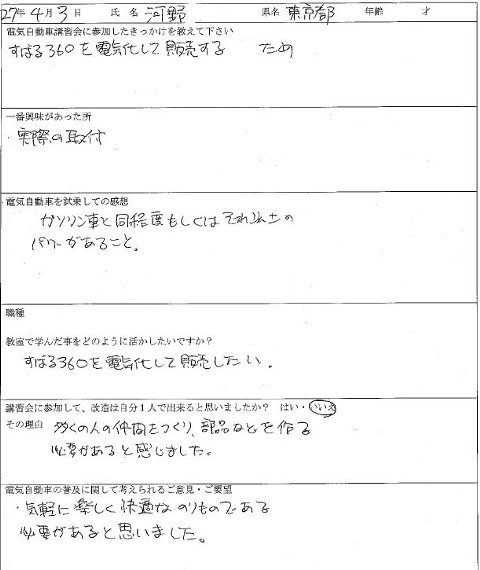 27年 4月 3日 氏 名 河野 県名 東京都 年齢 才
電気自動車講習会に参加したきっかけを教えて下さい
すばる360を電気化して販売する ため
一番興味があった所
・実際の取付
電気自動車を試乗しての感想
ガソリン車と同程度もしくはそれ以上の
パワーがあること。
職種
教室で学んだ事をどのように活かしたいですか?
すばる360を電気化して販売したい。
講習会に参加して、改造は自分1人で出来ると思いましたか? はい・いいえ
その理由 多くの人の仲間をつくり、部品などを作る
必要があると感じました。
電気自動車の普及に関して考えられるご意見・ご要望
・気軽に楽しく快適なのりものである
必要があると思いました。